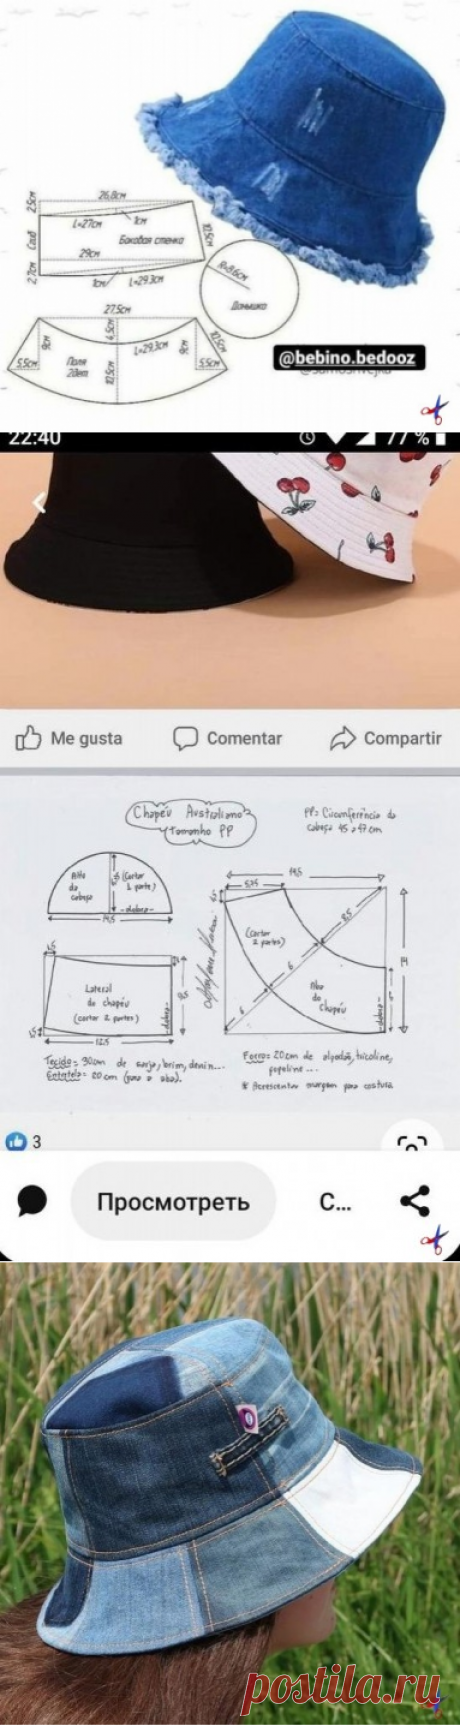 26,8см
2,5см
L=27см
1см
Боковая стенка
10,5см
Сгиб
29см
2,7см
1см
L=29.3см
R=8,6см
Донышко
27,5см
4,5см
L=29.3см
10,5см
9см
9см
5,5см
Поля
2дет
10,5см
5,5см
@bebino.bedooz
22:40
77%
Me gusta
Comentar
Compartir
Chapéu Australiano
Tamanho PP
PP= Circunferência da
cabeça 45 a 47 cm
Alto
da
cabeça
(Cortar
1 parte)
-dobra-
14,5
14,5
5,75
8,5
(cortar
2 partes)
14
6
6
Aba
do
Chapéu
1,5
Lateral
do chapéu
(cortar 2 partes)
9,5
12,5
Tecido= 30cm de sarja, brim, denin...
Entretela= 20 cm (para a aba).
Forro= 20cm de algodão, tricoline,
popeline...
* Acrescentar margem para costura
3
Просмотреть
С...
postila.ru